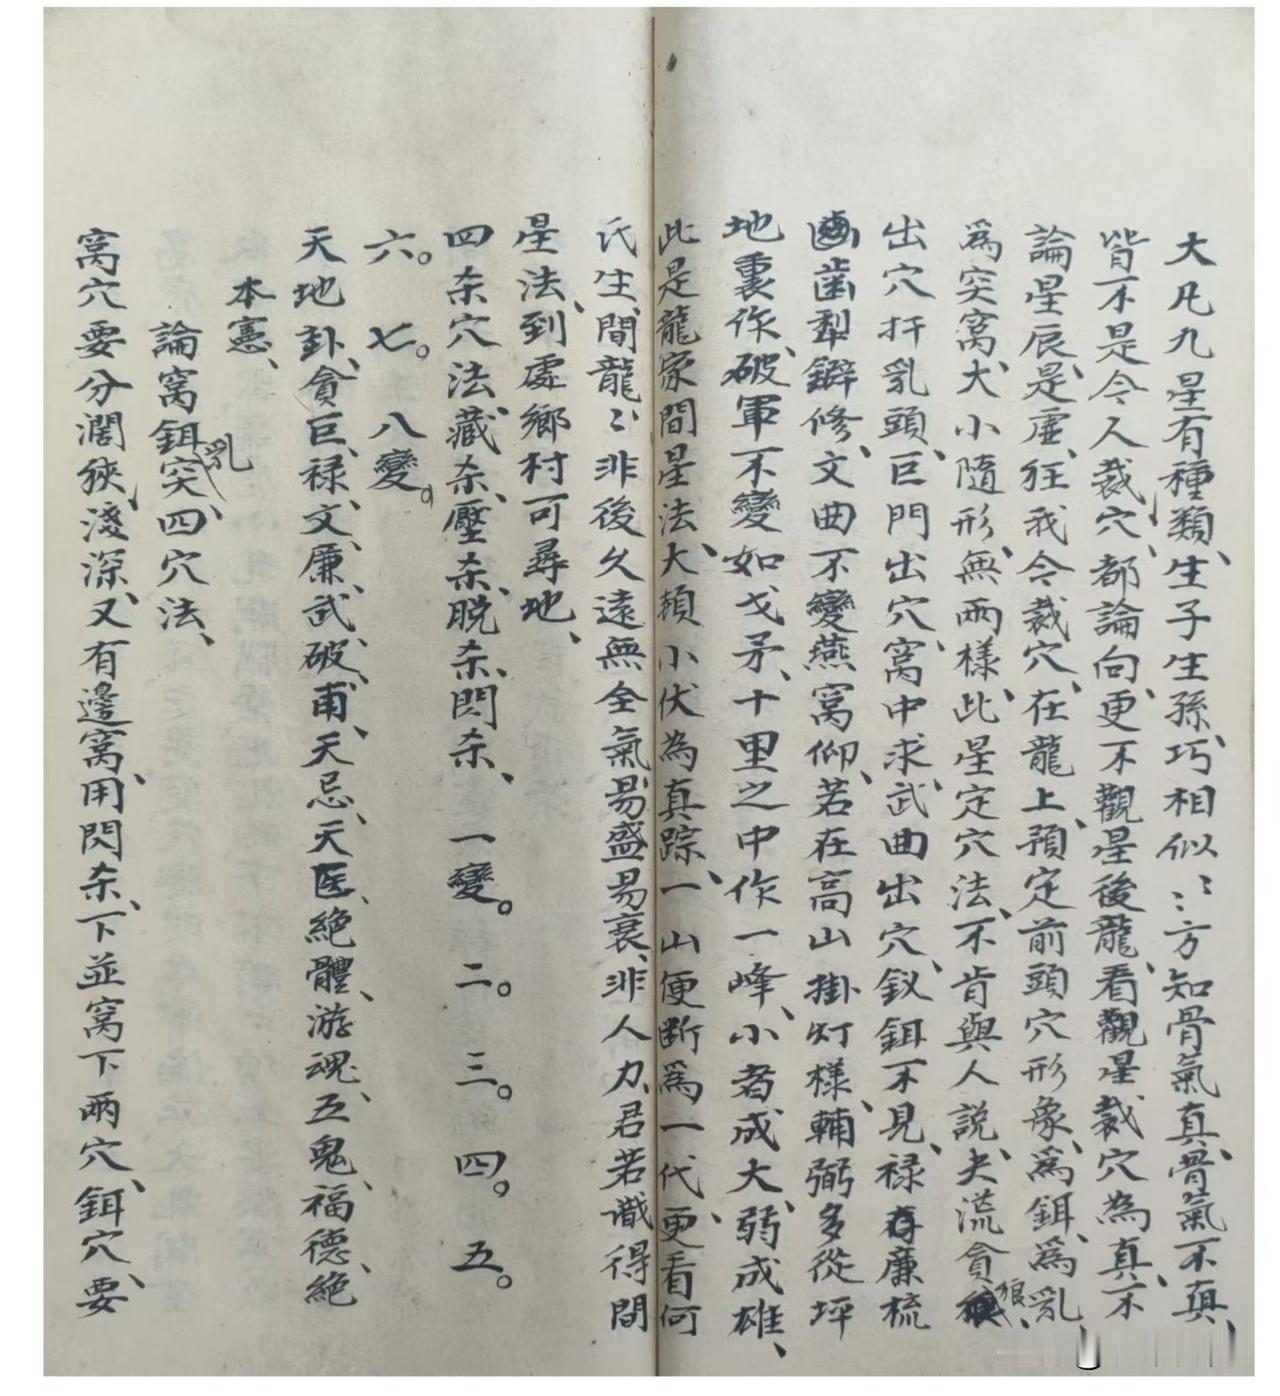 大凡九星有種類、生子生孫、巧相似〻方知骨氣真、骨氣不真、
皆不是今人裁穴、都論向、更不觀星後龍、看觀星裁穴為真、不
論星辰、是虛、狂我今裁穴、在龍上、預定前頭穴形象、爲鉺、爲乳、
爲突窩、大小隨形、無兩樣、此星定穴法、不肯與人説、夫流貪狼、
出穴扦乳頭、巨門出穴、窩中求、武曲出穴、釵鉺不見、禄存廉梳
齒犁鐴修、文曲不變燕窩仰、若在高山掛灯樣、輔弼多從坪
地裏作、破軍不變如戈矛、十里之中作一峰、小者成大、弱成雄、
此是龍家間星法、大頓小伏為真踪、一山便断爲一代、更看何
氏生、間龍〻非後久遠無全氣、易盛易衰、非人力、君若識得間
星法、到處鄉村可尋地、
四杀穴法、藏杀、壓杀、脱杀、閃杀、 一變。 二。 三。 四。 五。
六。 七。 八變。
天地卦、貪巨、禄、文、廉、武、破、甫、天忌、天医、絕體、游魂、五鬼、福德、絕
本憲、
論窩鉺乳突、四穴法、
窩穴要分濶狹、淺深、又有邊窩、用閃杀、下並窩下兩穴、鉺穴、要